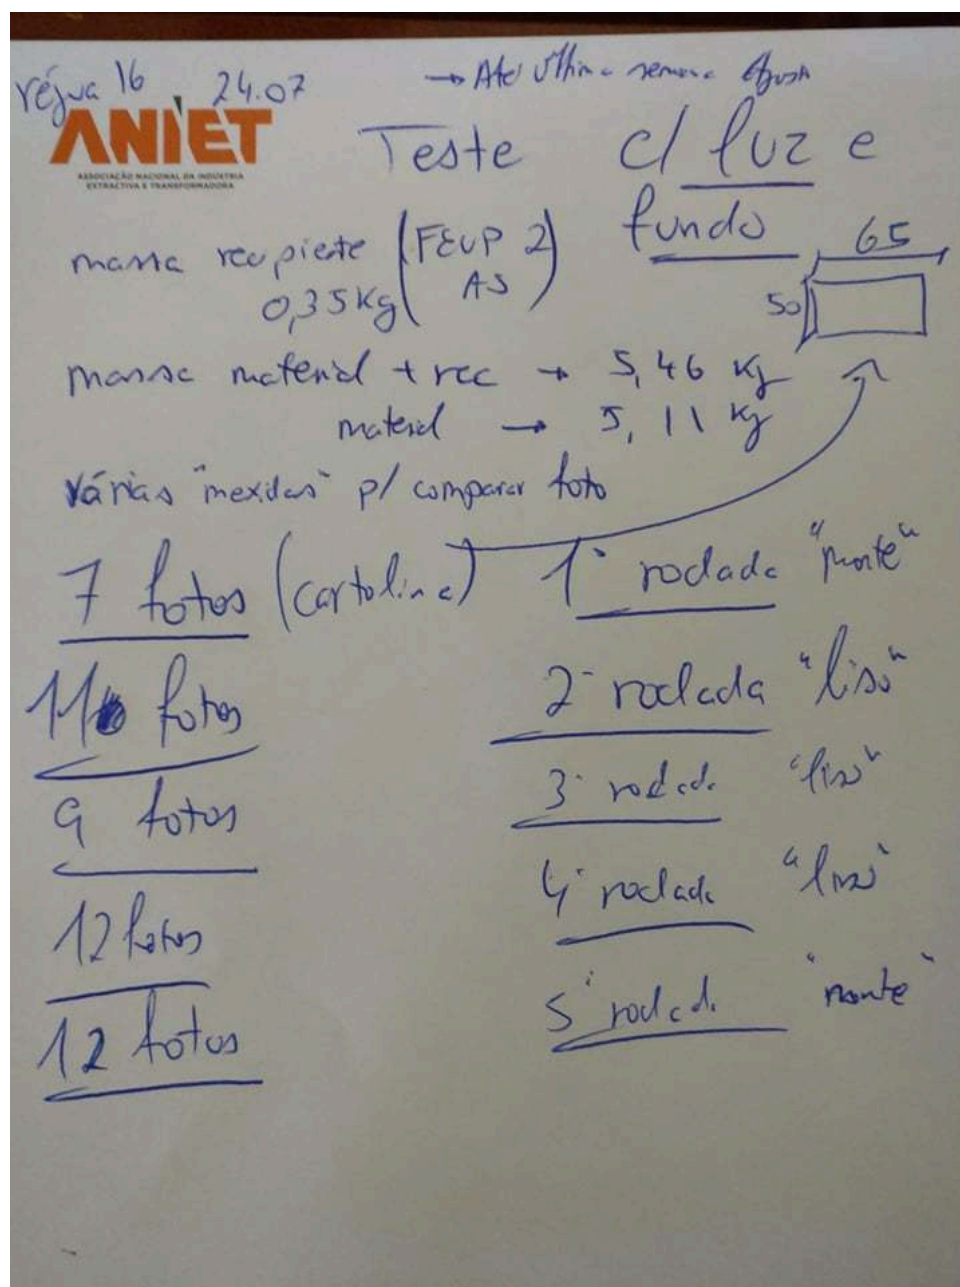 régua 16 24.07 → Até última semana Agosto
ANIET
ASSOCIAÇÃO NACIONAL DA INDÚSTRIA
EXTRACTIVA E TRANSFORMADORA
Teste c/ luz e
fundo
massa recipiente (FEUP 2
0,35 Kg AS)
65
50
massa material + rec → 5,46 Kg
material → 5,11 Kg
várias "mexidas" p/ comparar foto
7 fotos (cartolina) 1ª rodada "monte"
11 fotos 2ª rodada "liso"
9 fotos 3ª rodada "liso"
12 fotos 4ª rodada "liso"
12 fotos 5ª rodada "monte"